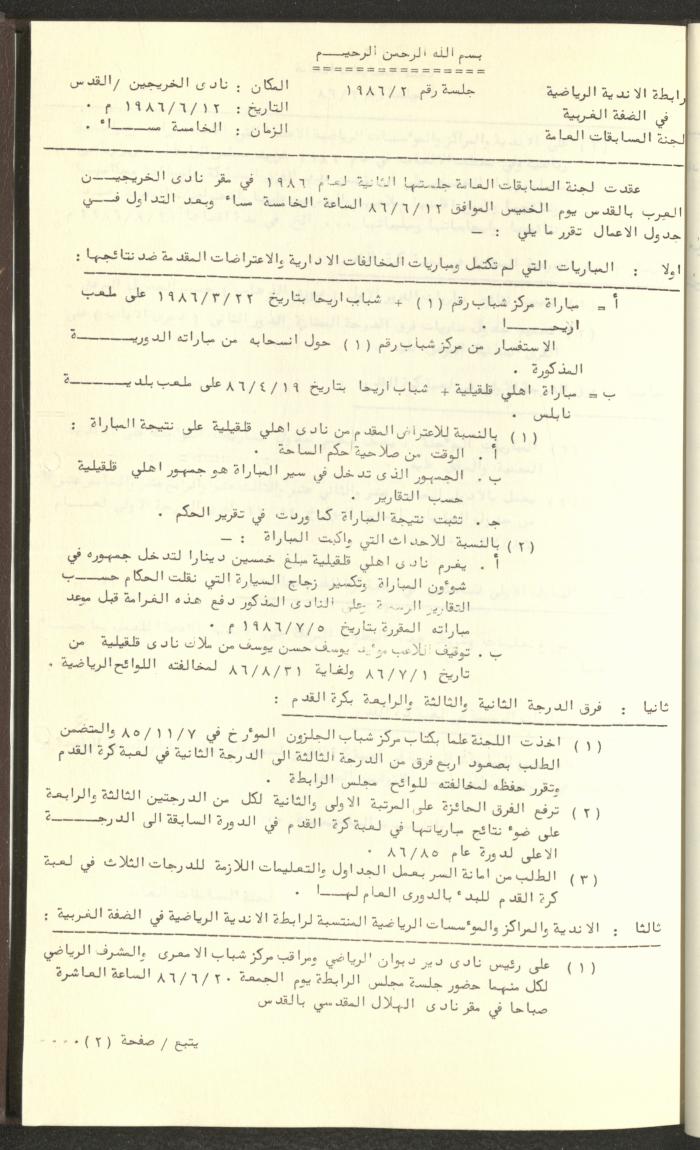 بسم الله الرحمن الرحيـــم
================
رابطة الاندية الرياضية جلسة رقم ١٩٨٦/٢ المكان : نادى الخريجين /القدس
في الضفة الغربية التاريخ : ١٩٨٦/٦/١٢ م .
لجنة المسابقات العامة الزمان : الخامسة مســـاء .
عقدت لجنة المسابقات العامة جلستها الثانية لعام ١٩٨٦ في مقر نادى الخريجيـــن
العرب بالقدس يوم الخميس الموافق ٨٦/٦/١٢ الساعة الخامسة مساء وبعد التداول فـــي
جدول الاعمال تقرر ما يلي : ـ
اولا : المباريات التي لم تكتمل ومباريات المخالفات الادارية والاعتراضات المقدمة ضد نتائجها :
أ = مباراة مركز شباب رقم (١) + شباب اريحا بتاريخ ١٩٨٦/٣/٢٢ على ملعب
اريحـــــا .
الاستفسار من مركز شباب رقم (١) حول انسحابه من مباراته الدوريـــــة
المذكورة .
ب = مباراة اهلي قلقيلية + شباب اريحا بتاريخ ٨٦/٤/١٩ على ملعب بلديـــــة
نابلس .
(١) بالنسبة للاعتراض المقدم من نادى اهلي قلقيلية على نتيجة المباراة :
أ . الوقت من صلاحية حكم الساحة .
ب . الجمهور الذى تدخل في سير المباراة هو جمهور اهلي قلقيلية
حسب التقارير .
جـ . تثبت نتيجة المباراة كما وردت في تقرير الحكم .
(٢) بالنسبة للاحداث التي واكبت المباراة : ـ
أ . يغرم نادى اهلي قلقيلية مبلغ خمسين دينارا لتدخل جمهوره في
شوءون المباراة وتكسير زجاج السيارة التي نقلت الحكام حســـب
التقارير الرسمية وعلى النادى المذكور دفع هذه الغرامة قبل موعد
مباراته المقررة بتاريخ ١٩٨٦/٧/٥ م .
ب . توقيف اللاعب موءيد يوسف حسن يوسف من ملاك نادى قلقيلية من
تاريخ ٨٦/٧/١ ولغاية ٨٦/٨/٣١ لمخالفته اللوائح الرياضية .
ثانيا : فرق الدرجة الثانية والثالثة والرابعة بكرة القدم :
(١) اخذت اللجنة علما بكتاب مركز شباب الجلزون الموءرخ في ٨٥/١١/٧ والمتضمن
الطلب بصعود اربع فرق من الدرجة الثالثة الى الدرجة الثانية في لعبة كرة القدم
وتقرر حفظه لمخالفته للوائح مجلس الرابطة .
(٢) ترفع الفرق الحائزة على المرتبة الاولى والثانية لكل من الدرجتين الثالثة والرابعة
على ضوء نتائج مبارياتها في لعبة كرة القدم في الدورة السابقة الى الدرجـــــة
الاعلى لدورة عام ٨٦/٨٥ .
(٣) الطلب من امانة السر بعمل الجداول والتعليمات اللازمة للدرجات الثلاث في لعبة
كرة القدم للبدء بالدورى العام لهـــا .
ثالثا : الاندية والمراكز والموءسسات الرياضية المنتسبة لرابطة الاندية الرياضية في الضفة الغربية :
(١) على رئيس نادى دير دبوان الرياضي ومراقب مركز شباب الامعرى والمشرف الرياضي
لكل منهما حضور جلسة مجلس الرابطة يوم الجمعة ٨٦/٦/٢٠ الساعة العاشرة
صباحا في مقر نادى الهلال المقدسي بالقدس
يتبع / صفحة (٢) ....